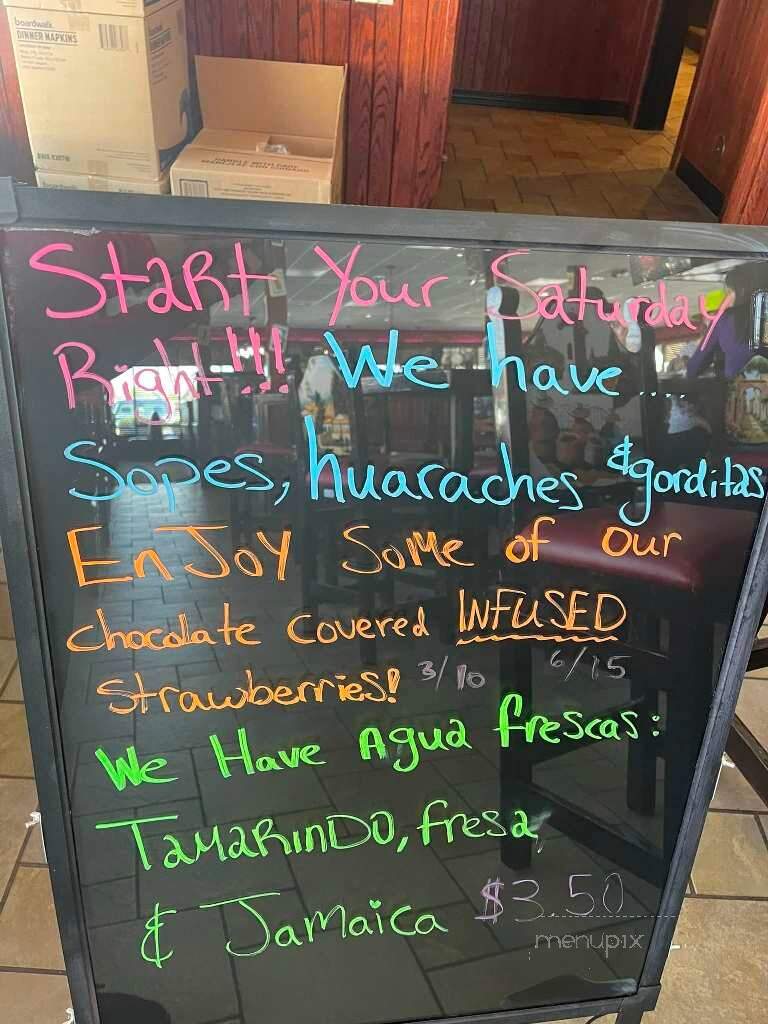 boardwalk
DINNER NAPKINS
HANDLE WITH CARE
Start Your Saturday
Right!!! We have....
Sopes, huaraches & gorditas
EnJoy Some of our
chocolate covered INFUSED
strawberries! 3/10 6/15
We Have Agua frescas:
TAMARINDO, fresa
& Jamaica $3.50
menupix